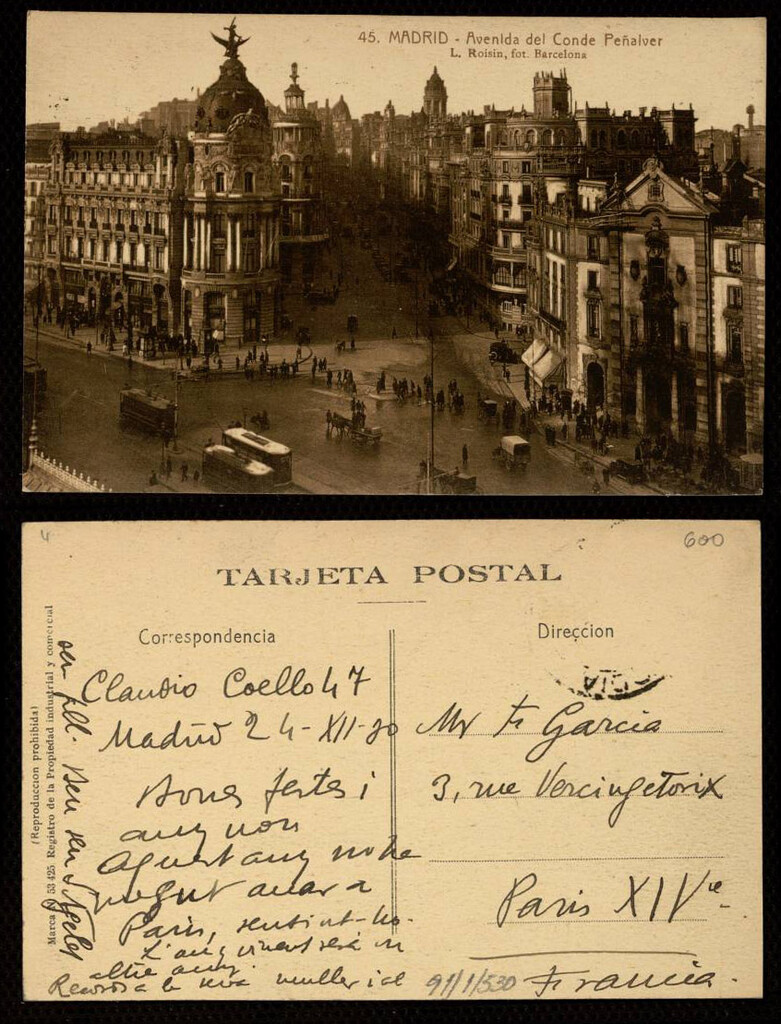 45. MADRID - Avenida del Conde Peñalver
L. Roisin, fot. Barcelona
4
600
TARJETA POSTAL
Correspondencia
Dirección
(Reproducción prohibida)
Marca 53425 Registro de la Propiedad industrial y comercial
Claudio Coello 47
Madrid 24-XII-30
Bones festes i
any nou
Aquest any no he
pogut anar a
Paris, sentint-ho.
L'any vinent será un
altre any.
Records a la seva muller i al
seu fill. Ben seu
Mr Fr Garcia
3, rue Vercingetorix
Paris XIVe
Francia.
91/1/530